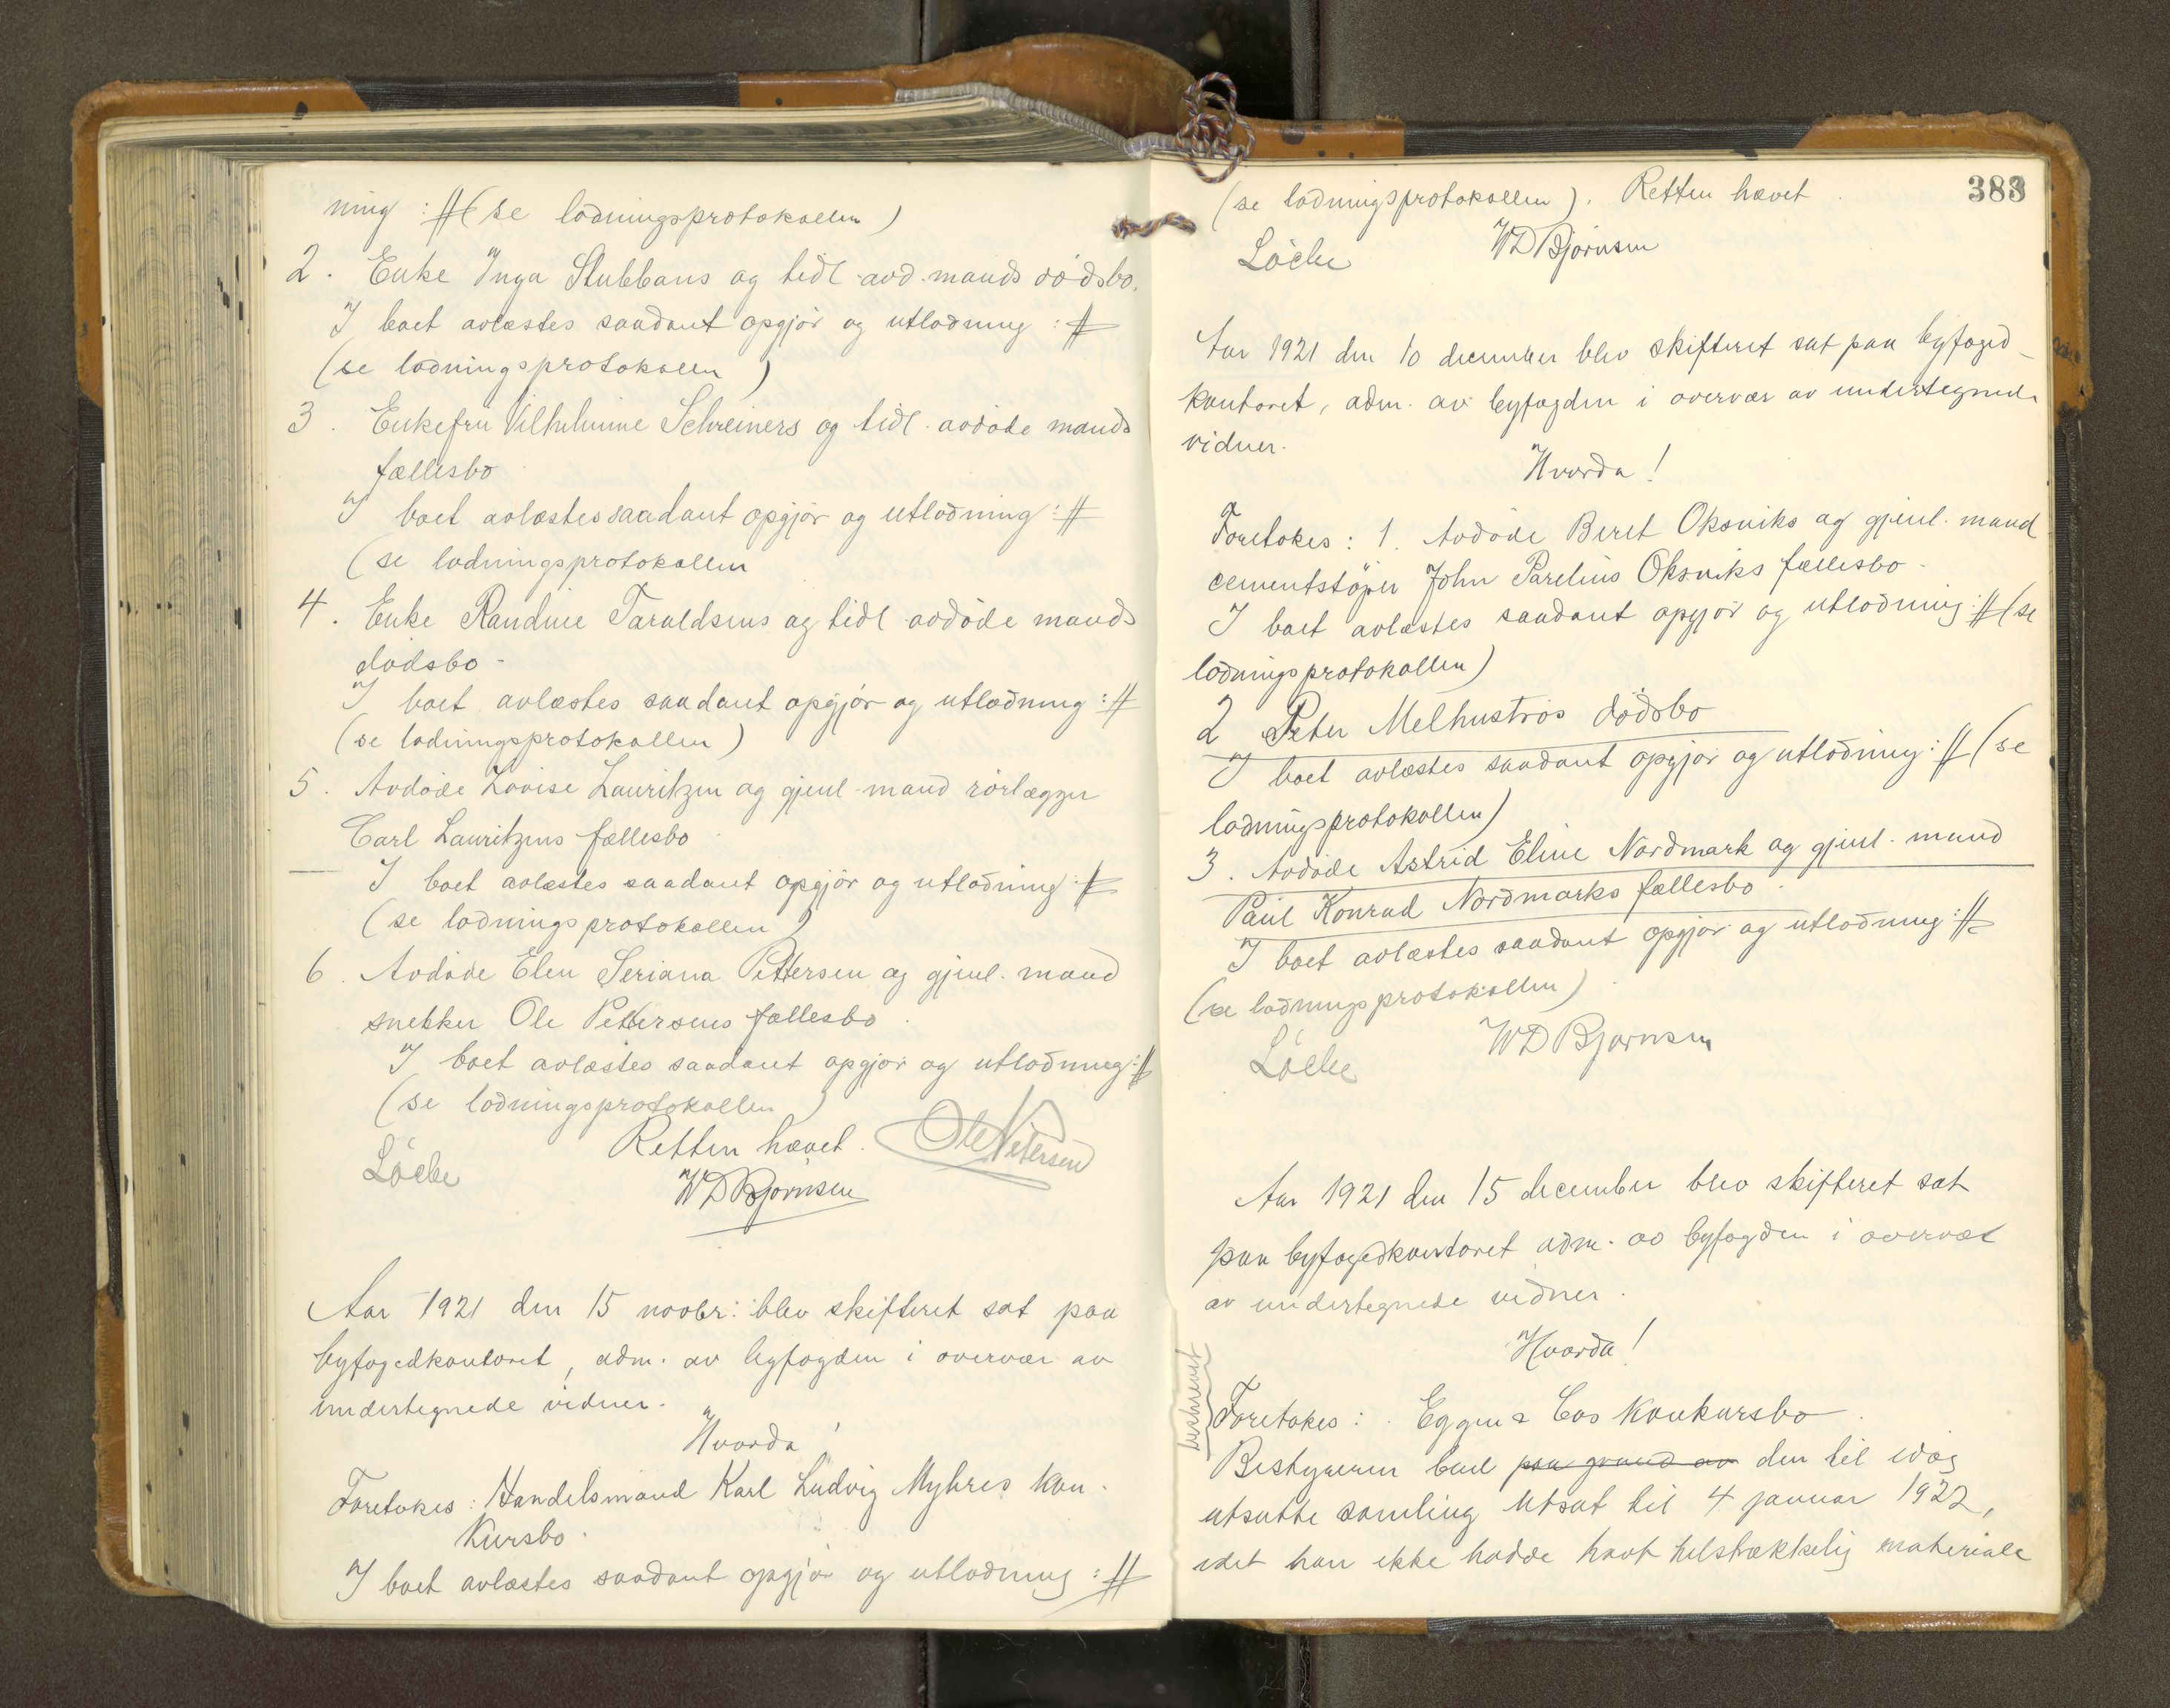 ning :# (se lodningsprotokollen)
2. Enke Inga Stubbans og tidl. avd. mands dødsbo.
I boet avlæstes saadant opgjør og utlodning :#
(se lodningsprotokollen)
3. Enkefru Vilhelmine Schreiners og tidl. avdøde mands
fællesbo
I boet avlæstes saadant opgjør og utlodning :#
(se lodningsprotokollen
4. Enke Randine Taraldsens og tidl avdøde mands
dødsbo.
I boet avlæstes saadant opgjør og utlodning :#
(se lodningsprotokollen)
5. Avdøde Lovise Lauritzen og gjenl. mand rørlægger
Carl Lauritzens fællesbo.
I boet avlæstes saadant opgjør og utlodning :#
(se lodningsprotokollen)
6. Avdøde Elen Seriana Pettersen og gjenl. mand
snekker Ole Pettersens fællesbo.
I boet avlæstes saadant opgjør og utlodning :#
(se lodningsprotokollen)
Retten hævet. Ole Petersen
Löche WD Bjørnsen
Aar 1921 den 15 novbr: blev skifteret sat paa
byfogedkontoret, adm. av byfogden i overvær av
undertegnede vidner.
Hvorda!
Foretokes: Handelsmand Karl Ludvig Myhres kon-
kursbo.
I boet avlæstes saadant opgjør og utlodning :#
383
(se lodningsprotokollen). Retten hævet.
Löche WD Bjørnsen
Aar 1921 den 10 december blev skifteret sat paa byfoged-
kontoret, adm. av byfogden i overvær av undertegnede
vidner.
Hvorda!
Foretokes: 1. Avdøde Beret Oksviks og gjenl. mand
cementstøper John Parelius Oksviks fællesbo.
I boet avlæstes saadant opgjør og utlodning :# (se
lodningsprotokollen)
2 Peter Melhustrøs dødsbo
I boet avlæstes saadant opgjør og utlodning :# (se
lodningsprotokollen)
3. Avdøde Astrid Eline Nordmark og gjenl. mand
Paul Konrad Nordmarks fællesbo.
I boet avlæstes saadant opgjør og utlodning :#
(se lodningsprotokollen).
Löche WD Bjørnsen
Aar 1921 den 15 december blev skifteret sat
paa byfogedkontoret adm. av byfogden i overvær
av undertegnede vidner.
Hvorda!
beskrevet
Foretokes: Eggen & Cos konkursbo.
Bestyreren bad paa grund av den til idag
utsatte samling utsat til 4 januar 1922,
idet han ikke hadde havt tilstrækkelig materiale